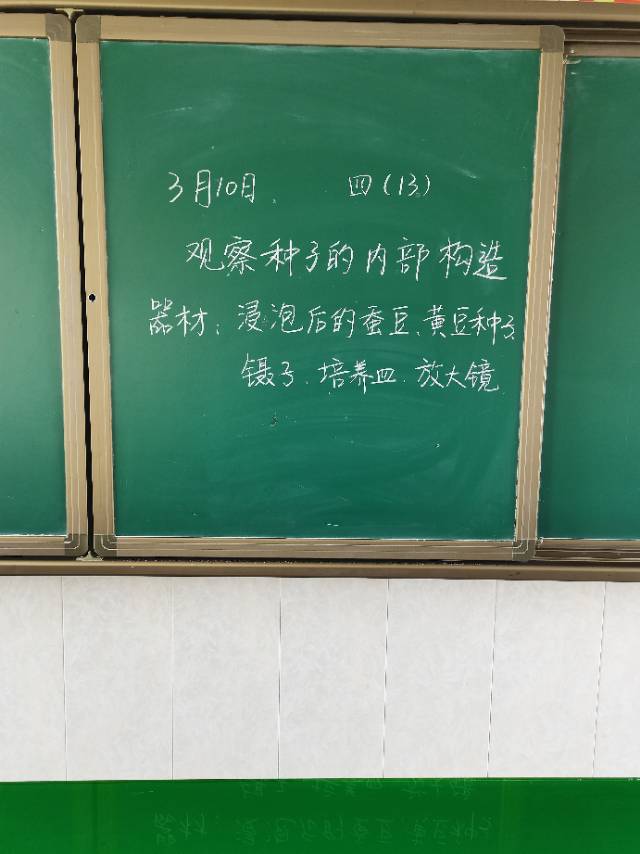 3月10日. 四(13)
观察种子的内部构造
器材: 浸泡后的蚕豆、黄豆种子
镊子. 培养皿. 放大镜